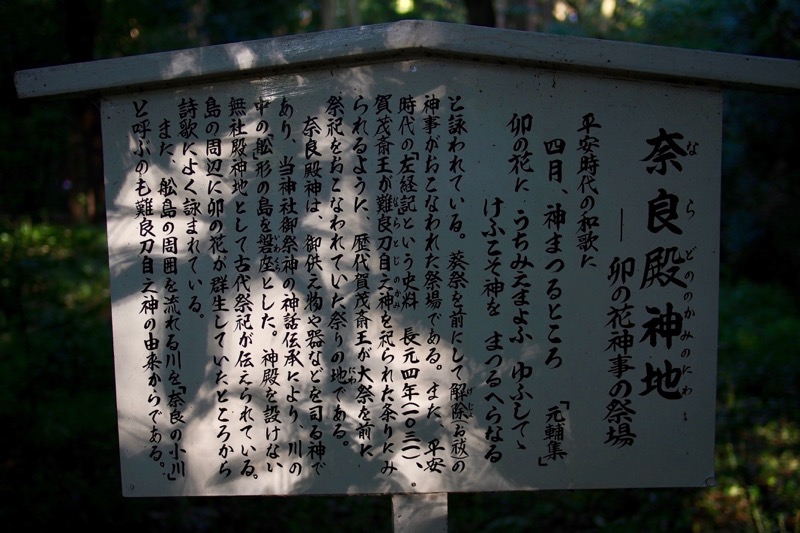 奈良殿神地
ならどののかみのにわ
— 卯の花神事の祭場
平安時代の和歌に
四月、神まつるところ 「元輔集」
卯の花に うちみえまよふ ゆふしでゝ
けふこそ神を まつるへらなる
と詠われている。葵祭を前にして解除(お祓)の
げじょ
神事がおこなわれた祭場である。また、平安
時代の「左経記」という史料 長元四年(一〇三一)、
賀茂斎王が難良刀自之神を祀られた条りにみ
ならとじのかみ
られるように、歴代賀茂斎王が大祭を前に
祭祀をおこなわれていた祭りの地である。
にわ
奈良殿神は、御供え物や器などを司る神で
あり、当神社御祭神の神話伝承により、川の
中の「舩」形の島を磐座とした。神殿を設けない
無社殿神地として古代祭祀が伝えられている。
島の周辺に卯の花が群生していたところから
詩歌によく詠まれている。
また、舩島の周囲を流れる川を「奈良の小川」
と呼ぶのも難良刀自之神の由来からである。